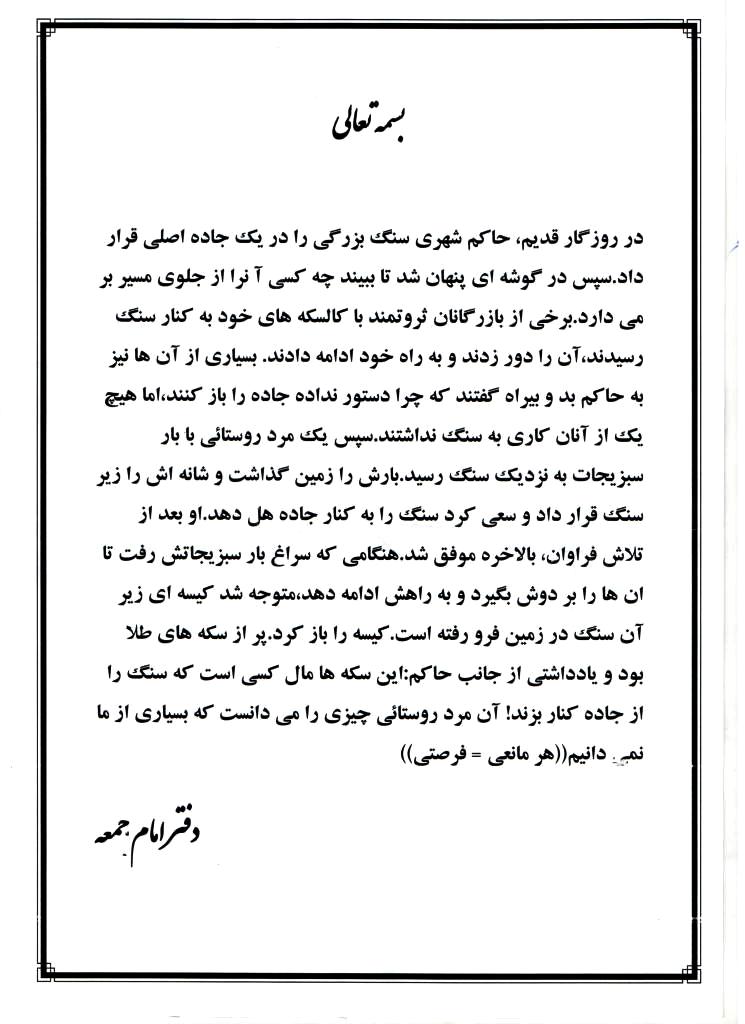 بسمه تعالی
در روزگار قدیم، حاکم شهری سنگ بزرگی را در یک جاده اصلی قرار
داد.سپس در گوشه ای پنهان شد تا ببیند چه کسی آ نرا از جلوی مسیر بر
می دارد.برخی از بازرگانان ثروتمند با کالسکه های خود به کنار سنگ
رسیدند،آن را دور زدند و به راه خود ادامه دادند. بسیاری از آن ها نیز
به حاکم بد و بیراه گفتند که چرا دستور نداده جاده را باز کنند،اما هیچ
یک از آنان کاری به سنگ نداشتند.سپس یک مرد روستائی با بار
سبزیجات به نزدیک سنگ رسید.بارش را زمین گذاشت و شانه اش را زیر
سنگ قرار داد و سعی کرد سنگ را به کنار جاده هل دهد.او بعد از
تلاش فراوان، بالاخره موفق شد.هنگامی که سراغ بار سبزیجاتش رفت تا
ان ها را بر دوش بگیرد و به راهش ادامه دهد،متوجه شد کیسه ای زیر
آن سنگ در زمین فرو رفته است.کیسه را باز کرد.پر از سکه های طلا
بود و یادداشتی از جانب حاکم:این سکه ها مال کسی است که سنگ را
از جاده کنار بزند! آن مرد روستائی چیزی را می دانست که بسیاری از ما
نمی دانیم((هر مانعی = فرصتی))
دفتر امام جمعه